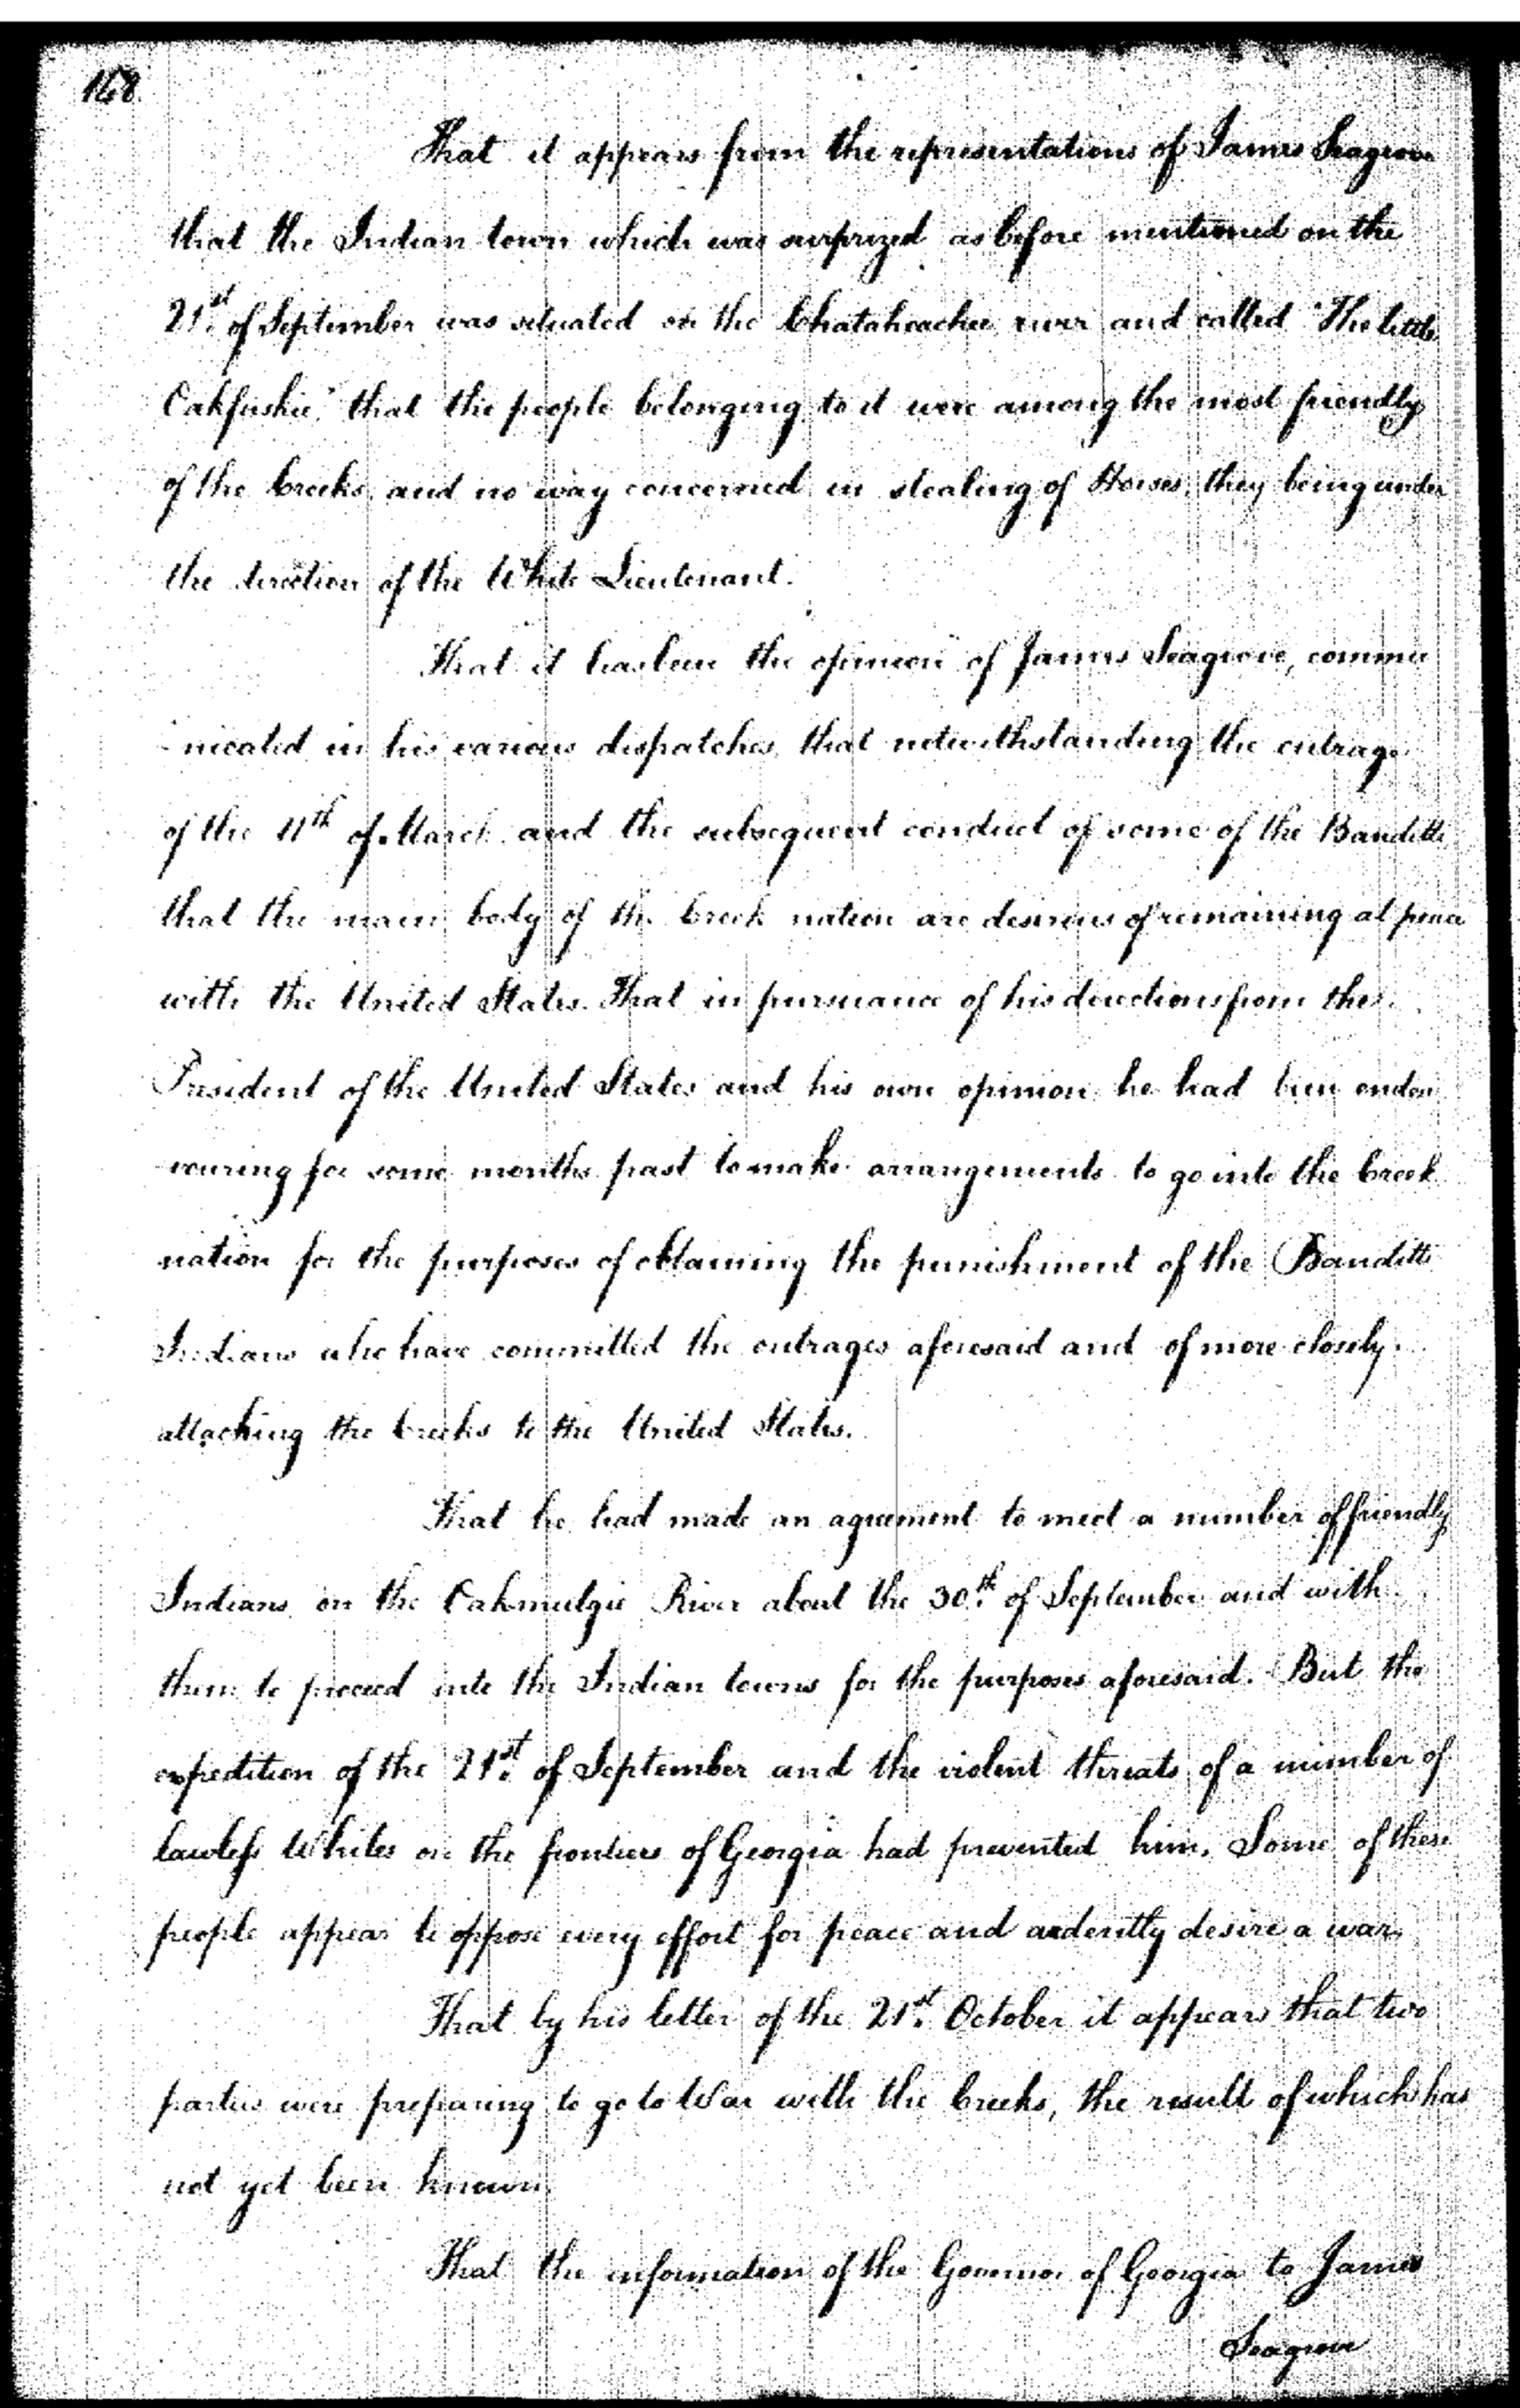 168.
That it appears from the representations of James Seagrove
that the Indian town which was surprized as before mentioned on the
21st. of September was situated on the Chatahoachee river and called "The little
Oakfuskie," that the people belonging to it were among the most friendly
of the Creeks, and no way concerned in stealing of Horses, they being under
the direction of the White Lieutenant.
That it has been the opinion of James Seagrove, commu
-nicated in his various dispatches, that notwithstanding the outrage
of the 11th of March and the subsequent conduct of some of the Banditti,
that the main body of the Creek nation are desirous of remaining at peace
with the United States. That in pursuance of his directions from the
President of the United States and his own opinion he had been endea
vouring for some months past to make arrangements to go into the Creek
nation for the purposes of obtaining the punishment of the Banditti
Indians who have committed the outrages aforesaid and of more closely
attaching the Creeks to the United States.
That he had made an agreement to meet a number of friendly
Indians on the Oakmulgie River about the 30th. of September and with
them to proceed into the Indian towns for the purposes aforesaid. But the
expedition of the 21st. of September and the violent threats of a number of
lawless Whites on the frontiers of Georgia had prevented him. Some of these
people appear to oppose every effort for peace and ardently desire a war.
That by his letter of the 21st. October it appears that two
parties were preparing to go to War with the Creeks, the result of which has
not yet been known.
That the information of the Governor of Georgia to James
Seagrove